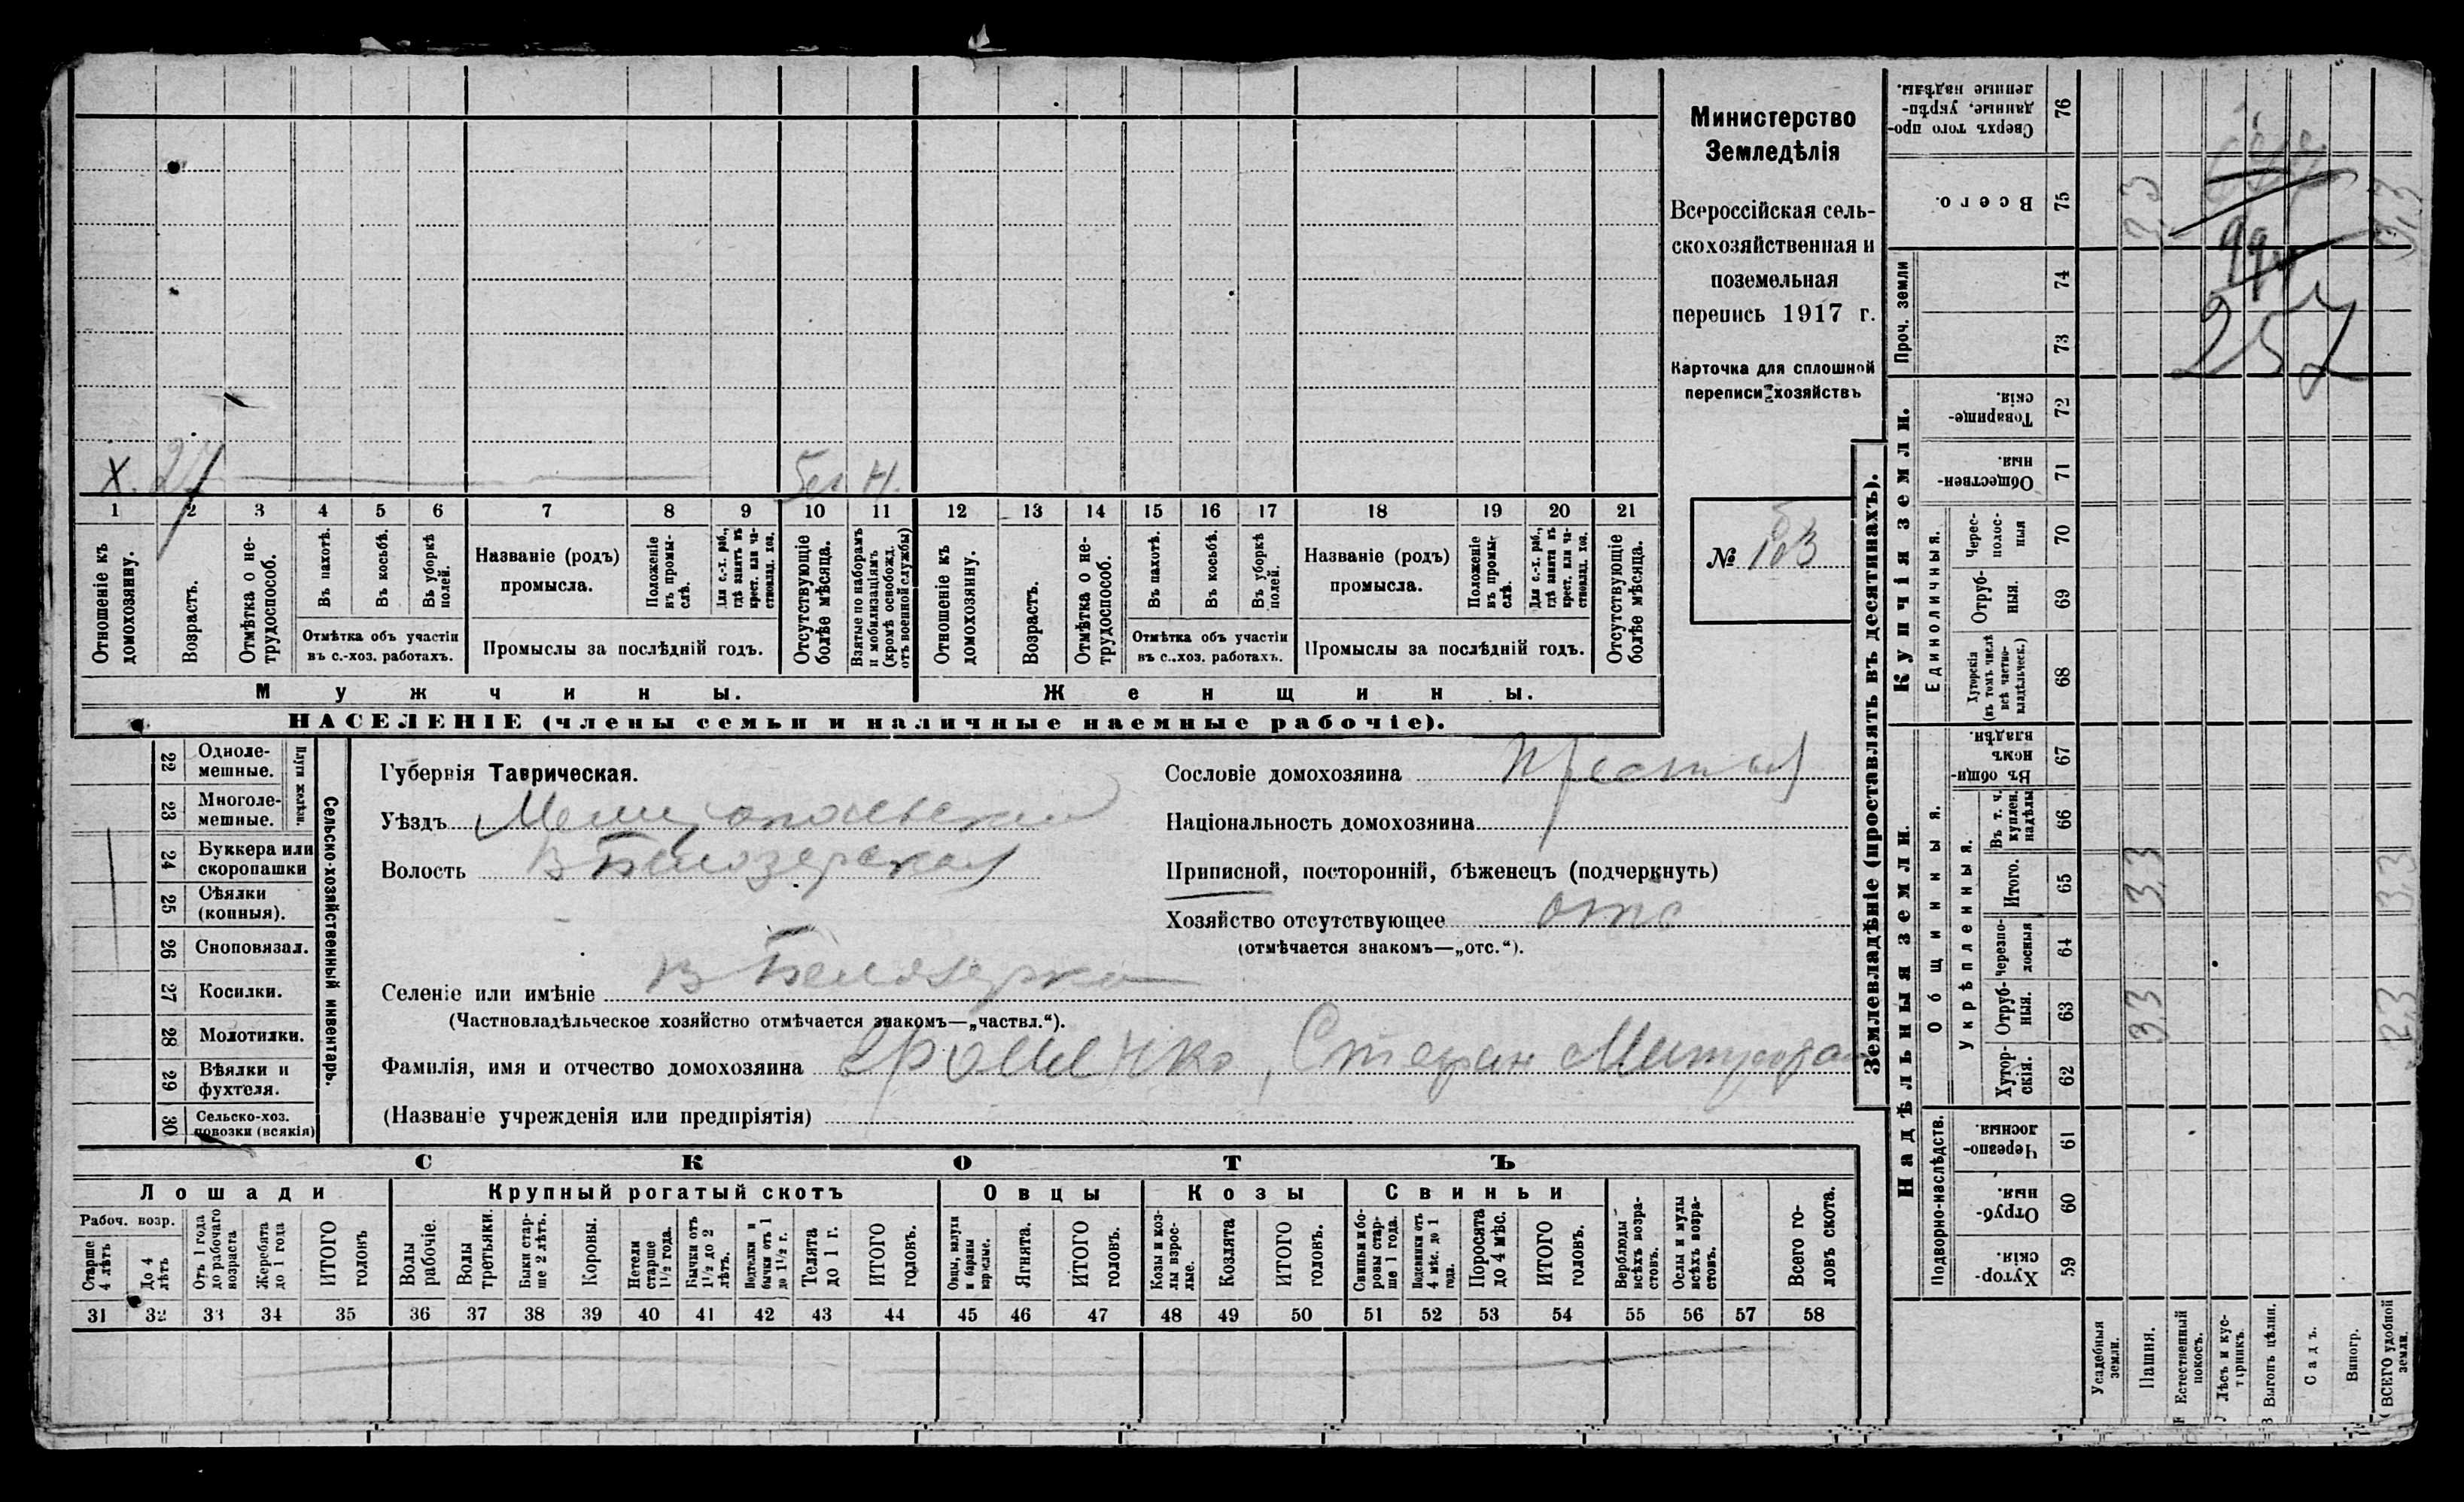 Министерство
Земледѣлія
Всероссійская сель-
скохозяйственная и
поземельная
перепись 1917 г.
Карточка для сплошной
переписи хозяйствъ
№ 103
Х. 27 Бел Н.
1 2 3 4 5 6 7 8 9 10 11 12 13 14 15 16 17 18 19 20 21
Отношеніе къ домохозяину.
Возрастъ.
Отмѣтка о не-трудоспособ.
Въ пахотѣ.
Въ косьбѣ.
Въ уборкѣ полей.
Отмѣтка объ участіи
въ с.-хоз. работахъ.
Названіе (родъ)
промысла.
Положеніе въ промы-слѣ.
Для с.-х. раб., гдѣ занятъ въ крест. или ча-ствовлад. хоз.
Промыслы за послѣдній годъ.
Отсутствующіе болѣе мѣсяца.
Взятые по наборамъ и мобилизаціямъ (кромѣ освобожд. отъ военной службы)
Отношеніе къ домохозяину.
Возрастъ.
Отмѣтка о не-трудоспособ.
Въ пахотѣ.
Въ косьбѣ.
Въ уборкѣ полей.
Отмѣтка объ участіи
въ с.-хоз. работахъ.
Названіе (родъ)
промысла.
Положеніе въ промы-слѣ.
Для с.-х. раб., гдѣ занята въ крест. или ча-ствовлад. хоз.
Промыслы за послѣдній годъ.
Отсутствующіе болѣе мѣсяца.
Мужчины. Женщины.
НАСЕЛЕНІЕ (члены семьи и наличные наемные рабочіе).
22 Одноле-мешные.
23 Многоле-мешные.
Плуги желѣз.
24 Буккера или скоропашки
25 Сѣялки (конныя).
26 Сноповязал.
27 Косилки.
28 Молотилки.
29 Вѣялки и фухтеля.
30 Сельско-хоз. повозки (всякія)
Сельско-хозяйственный инвентарь.
Губернія Таврическая.
Уѣздъ Мелитопольский
Волость В Белозерская
Селеніе или имѣніе В Белозерка
(Частновладѣльческое хозяйство отмѣчается знакомъ—„частвл.“).
Фамилія, имя и отчество домохозяина Стефан Митрофан
(Названіе учрежденія или предпріятія)
Сословіе домохозяина
Національность домохозяина
Приписной, посторонній, бѣженецъ (подчеркнуть)
Хозяйство отсутствующее отс
(отмѣчается знакомъ—„отс.“).
СКОТЪ
Лошади Крупный рогатый скотъ Овцы Козы Свиньи
Рабоч. возр.
Старше 4 лѣтъ
До 4 лѣтъ
Отъ 1 года до рабочаго возраста
Жеребята до 1 года
ИТОГО головъ
Волы рабочіе.
Волы третьяки.
Быки стар-ше 2 лѣтъ.
Коровы.
Нетели старше 1½ года.
Бычки отъ 1½ до 2 лѣтъ.
Подтелки и бычки отъ 1 до 1½ г.
Телята до 1 г.
ИТОГО головъ.
Овцы, валухи и бараны взрослые.
Ягнята.
ИТОГО головъ.
Козы и коз-лы взрос-лые.
Козлята
ИТОГО головъ.
Свиньи и бо-ровы стар-ше 1 года.
Подсвинки отъ 4 мѣс. до 1 года.
Поросята до 4 мѣс.
ИТОГО головъ.
Верблюды всѣхъ возра-стовъ.
Ослы и мулы всѣхъ возра-стовъ.
Всего го-ловъ скота.
31 32 33 34 35 36 37 38 39 40 41 42 43 44 45 46 47 48 49 50 51 52 53 54 55 56 57 58
Землевладѣніе (проставлять въ десятинахъ).
Надѣльныя земли. Купчія земли. Проч. земли
Подворно-наслѣдств.
Общинныя.
Укрѣпленныя.
Единоличныя.
Хутор-скія. 59
Отруб-ныя. 60
Черезпо-лосныя. 61
Хутор-скія. 62
Отруб-ныя. 63
Черезпо-лосныя 64
Итого. 65
Въ т. ч. куплен. надѣлы 66
Въ общи-номъ владѣн. 67
Хуторскія (въ томъ числѣ всѣ частно-владѣльческ.) 68
Отруб-ныя. 69
Черес-полос-ныя 70
Обществен-ныя. 71
Товарище-скія. 72
73
74
Всего. 75
Сверхъ того про-данные, укрѣп-ленные надѣлы. 76
Усадебныя земли.
Пашня.
Естественный покосъ.
Лѣсъ и кус-тарникъ.
Выгонъ цѣлин.
Садъ.
Виногр.
ВСЕГО удобной земли.
3,3 3,3
257